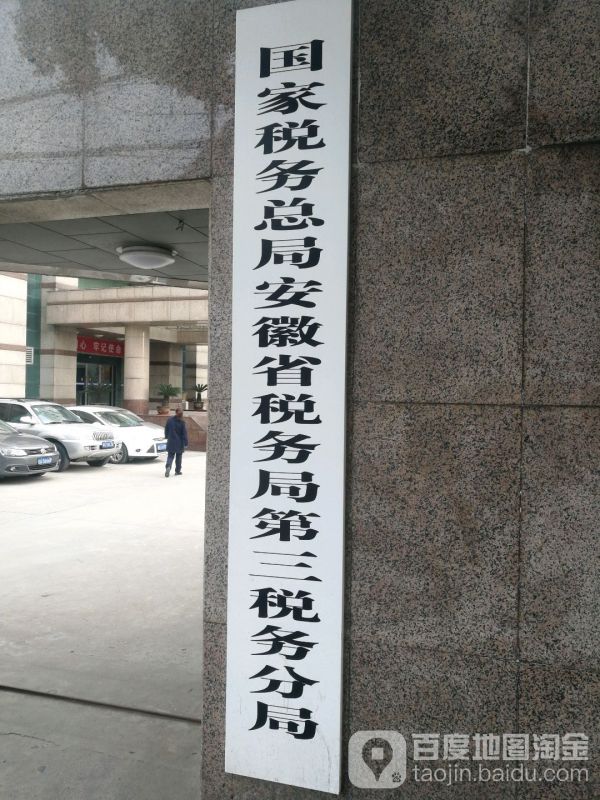 国家税务总局安徽省税务局第三税务分局
心 牢记使命
百度地图淘金
taojin.baidu.com